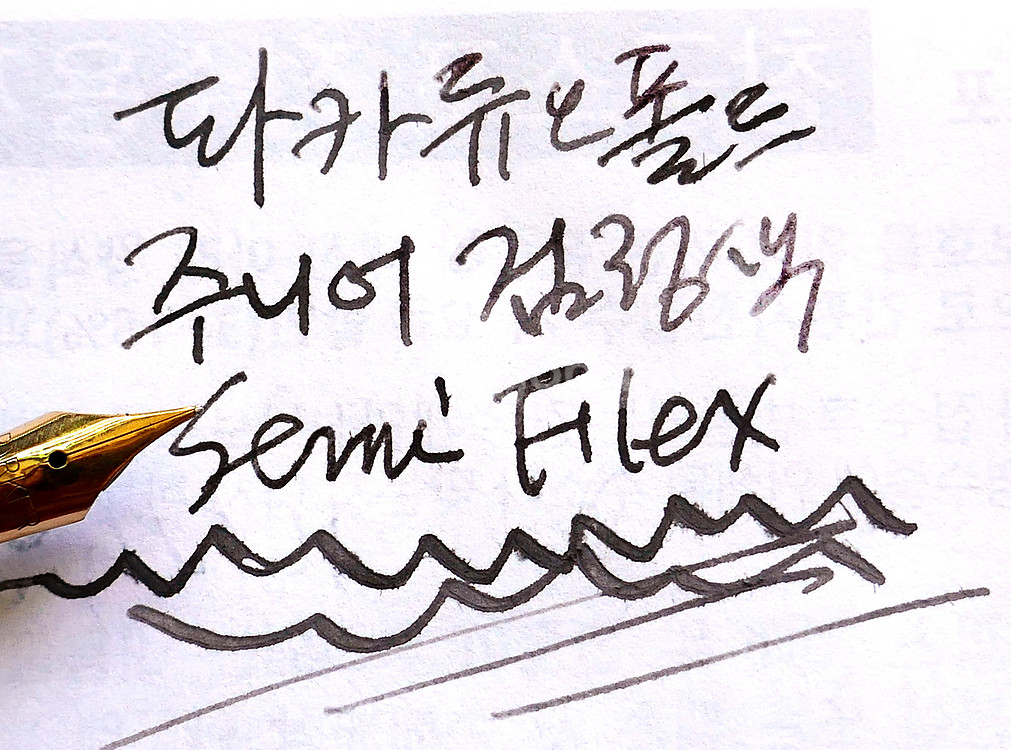 파카듀오폴드
주니어 검정색
Semi Flex